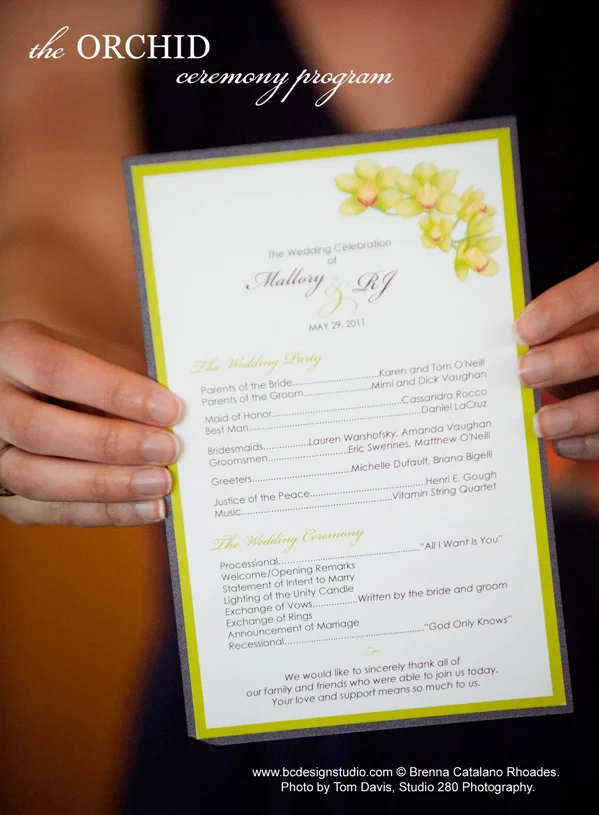 the ORCHID
ceremony program
The Wedding Celebration
of
Mallory & RJ
MAY 29, 2011
The Wedding Party
Parents of the Bride..............................Karen and Tom O'Neill
Parents of the Groom..............................Mimi and Dick Vaughan
Maid of Honor..............................Cassandra Rocco
Best Man..............................Daniel LaCruz
Bridesmaids..............Lauren Warshofsky, Amanda Vaughan
Groomsmen..............................Eric Swennes, Matthew O'Neill
Greeters..............................Michelle Dufault, Briana Bigelli
Justice of the Peace..............................Henri E. Gough
Music..............................Vitamin String Quartet
The Wedding Ceremony
Processional..............................“All I Want Is You”
Welcome/Opening Remarks
Statement of Intent to Marry
Lighting of the Unity Candle
Exchange of Vows..............Written by the bride and groom
Exchange of Rings
Announcement of Marriage
Recessional..............................“God Only Knows”
We would like to sincerely thank all of
our family and friends who were able to join us today.
Your love and support means so much to us.
www.bcdesignstudio.com © Brenna Catalano Rhoades.
Photo by Tom Davis, Studio 280 Photography.